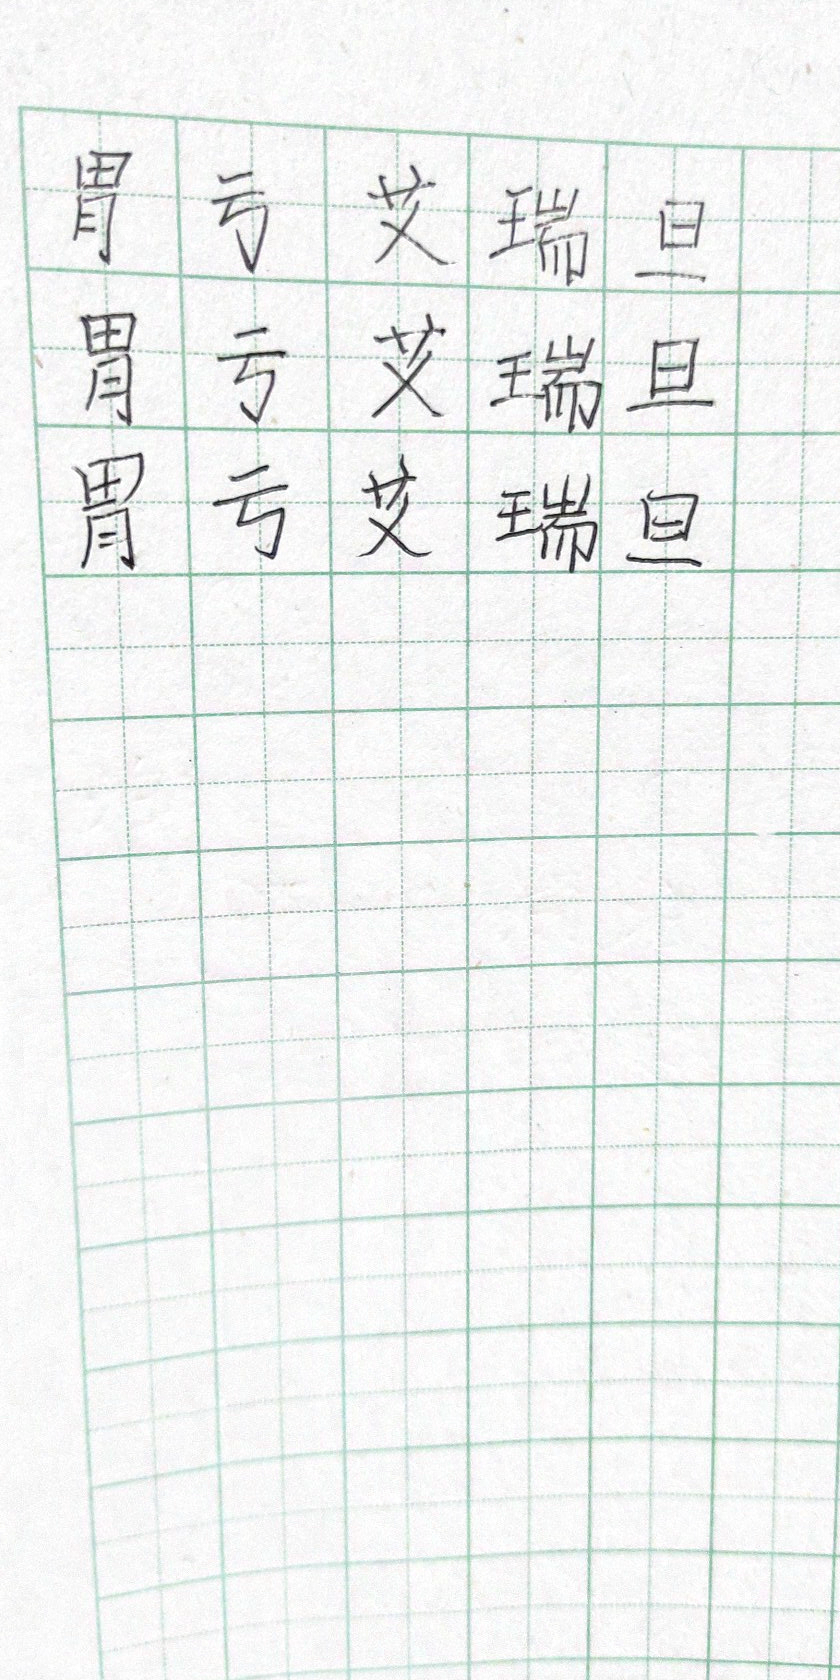 胃 亏 艾 瑞 旦
胃 亏 艾 瑞 旦
胃 亏 艾 瑞 旦